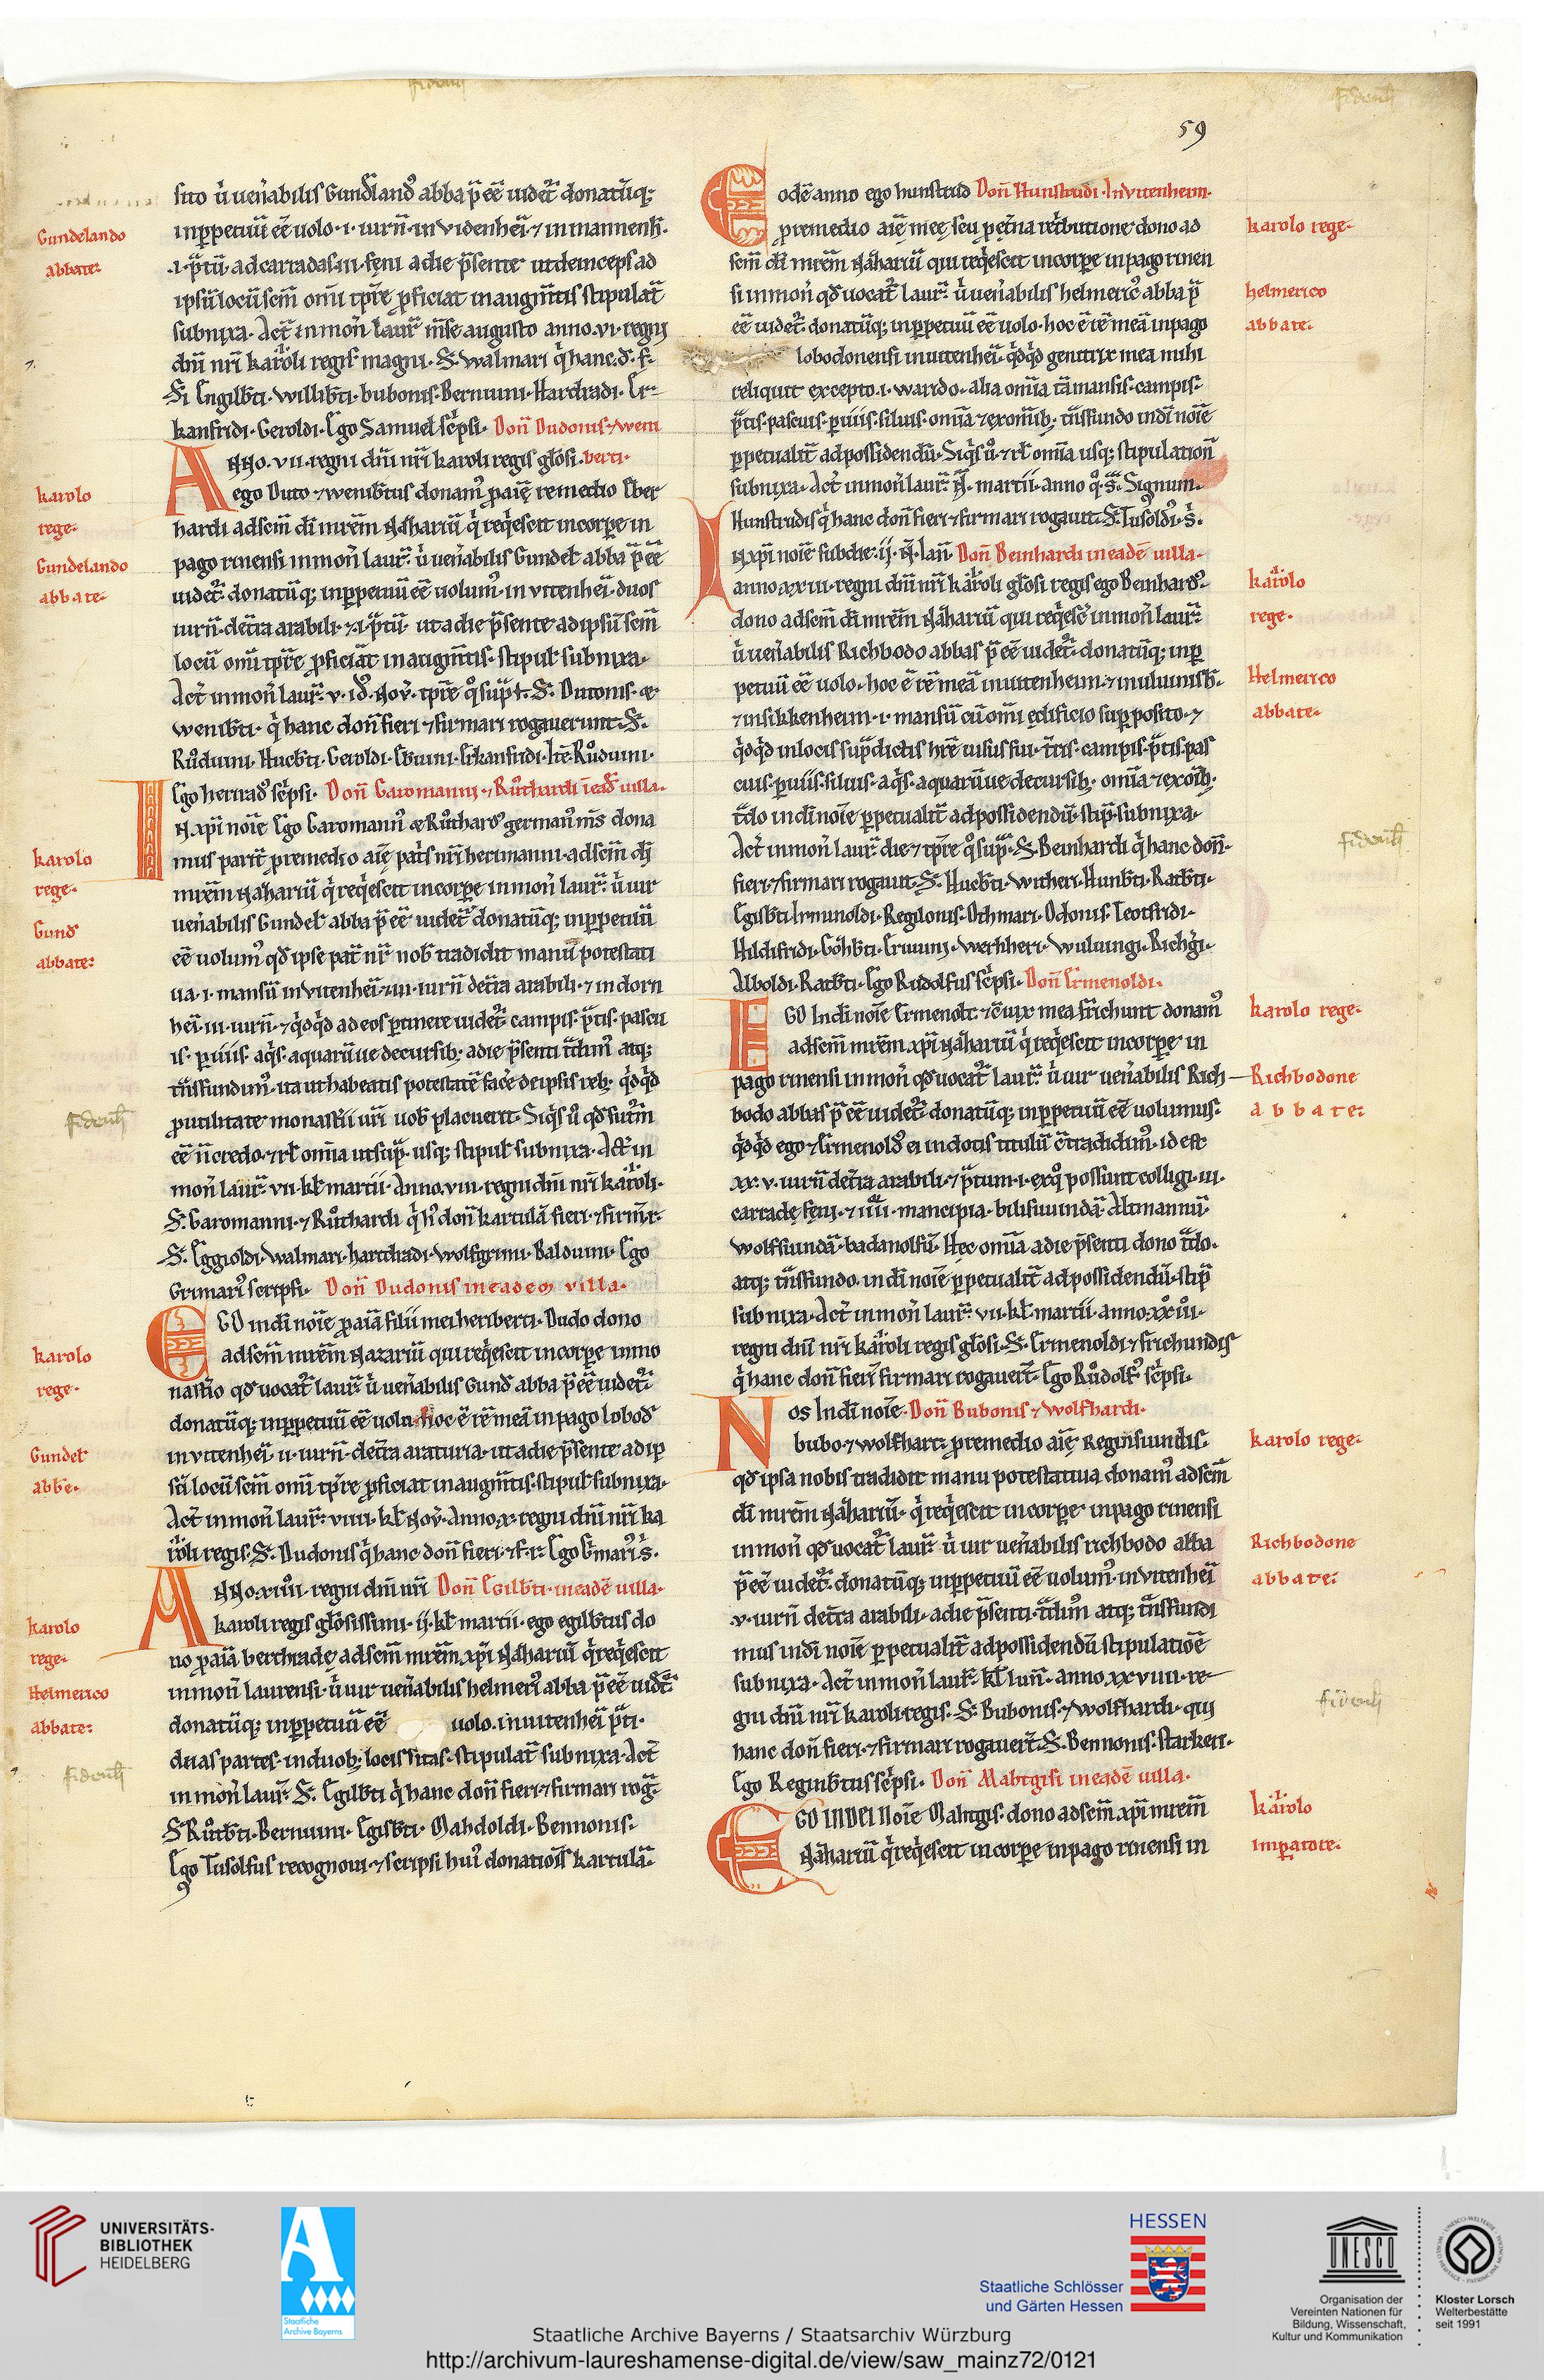 59
sito ů uenabilis Gundlando abba p̄ eē uidet̄ donatūq;
inp̱petuū eē uolo .i. iurn̄ in videnhei ⁊ in mannenh̄.
.i. p̄tū ad carradas .iii. feni a die p̄sente ut deinceps ad
ipsū locū sc̄m om̄i tp̄re p̱ficiat in augm̄tis stipulat̄
subnixa. Act̄ in mon̄ laur̄ m̄se augusto anno .vi. regni
dn̄i nr̄i karoli regis magni. S. walmari q̇ hanc. d. f.
Si Engilb̄ti. willib̄ti. bubonis. Bernuini. Hardradi. Er
kanfridi. Geroldi. Ego Samuel sc̄psi. Don̄ Dudonis ⁊ weni
ANNO .vii. regni dn̄i nr̄i karoli regis gl̄osi. berti.
ego Duto ⁊ wenib̄tus donam' p̱ aīe remedio Eber
hardi ad sc̄m dī mr̄em Nazariū q̇ reqescit in corp̱e in
pago rinensi in mon̄ laur̄ ů uenabilis Gundel abba p̄ eē
uidet̄ donatūq; inp̱petuū eē uolum' in vitenhei duos
iurn̄. de t̄ra arabili ⁊ .i. p̄tū ut a die p̄sente ad ipsū sc̄m
locū om̄i tp̄re p̱ficiat in augm̄tis. stipul subnixa.
Act̄ in mon̄ laur̄ .v. id' Nov̄. tp̄re q̊ sup̄. S. Dutonis. ⁊
wenib̄ti. q̇ hanc don̄ fieri ⁊ firmari rogauerunt. S.
Růduini. Hucb̄ti. Geroldi. Ebuini. Erkanfridi. Itē Růduini.
Ego herrad' sc̄psi. Don̄ Garomanni ⁊ Růthardi ī ead' uilla.
IN xp̄i noīe Ego Garomann' ⁊ Růthard' german' m̄s dona
mus parit̄ p̱ remedio aīe pat̄s nr̄i herimanni. ad sc̄m dī
mr̄em Nazariū q̇ reqescit in corp̱e in mon̄ laur̄ ů uir
uenabilis Gundel abba p̄ eē uidet̄ donatūq; inp̱petuū
eē uolum' qd ipse pat̄ nr̄ nob tradidit manu potestati
ua .i. mansū in vitenhei ⁊ .iii. iurn̄ de t̄ra arabili. ⁊ in dorn
hei .iii. iurn̄. ⁊ q̇dq̇d ad eos p̱tinere uidet̄ campis. p̄tis. pascu
is. p̱uiis. aq̇s. aquarūue decursib; a die p̄senti t̄dim' atq;
t̄nsfundim'. ita ut habeatis potestatē face de ipsis reb; q̇dq̇d
p̱ utilitate monast̄ii ur̄i uob placuerit. Siq̇s ů qd fut̄m
eē n̄ credo. ⁊ rl om̄ia ut sup̄. usq; stipul subnixa. Act̄ in
mon̄ laur̄ .vii. kl martii. Anno .viii. regni dn̄i nr̄i karoli.
S. Garomanni. ⁊ Růthardi q̇ h' don̄ kartulā fieri ⁊ firm̄r.
S. Eggioldi. walmari. hartradi. wolfgrimi. Balduini. Ego
Grimar' scripsi. Don̄ Dudonis in eadem villa.
EGO in dī noīe p̱ aīa filii mei heriberti. Dudo dono
ad sc̄m mr̄em Nazariū qui reqescit in corp̱e in mo
nast̄io qd uocat̄ laur̄ ů uenabilis Gund abba p̄ eē uidet̄
donatūq; inp̱petuū eē uolo. hoc ē rē meā in pago lobod
in vitenhei .ii. iurn̄. de t̄ra araturia. ut a die p̄sente ad ip
sū locū sc̄m om̄i tp̄re p̱ficiat in augm̄tis. stipul subnixa.
Act̄ in mon̄ laur̄ .viiii. kl Nov̄. Anno .x. regni dn̄i nr̄i ka
roli regis. S. Dudonis q̇ hanc don̄ fieri. ⁊ f. r. Ego G̊mari' s.
ANNO .xiiii. regni dn̄i nr̄i Don̄ Egilb̄ti. in eadē uilla.
karoli regis gl̄osissimi .ii. kl martii. ego egilb̄tus do
no p̱ aīa berthrade ad sc̄m mr̄em xp̄i Nazariū q̇ reqescit
in mon̄ laurensi. ů uir uenabilis helmeri' abba p̄ eē uidet̄
donatūq; inp̱petuū eē uolo. in uitenhei p̄ti.
duas partes. in duob; locis sitas. stipulat̄ subnixa. Act̄
in mon̄ laur̄ S. Egilb̄ti q̇ hanc don̄ fieri ⁊ firmari roḡ.
S Růtb̄ti. Bernuini. Egisb̄ti. Mahdoldi. Bennonis.
Ego Tusolfus recognoui ⁊ scripsi hui' donatiōis kartulā.
Gundelando
abbate.
karolo
rege.
Gundelando
abbate.
karolo
rege.
Gund
abbate.
karolo
rege.
Gundel
abbe.
karolo
rege.
Helmerico
abbate.
Eodē anno ego hunstrud Don̄ Hunstrudi. In vitenheim.
p̱ remedio aīe mee seu p̱ et̄na ret̄butione dono ad
sc̄m dī mr̄em Nazariū qui reqescit in corp̱e in pago rinen
si in mon̄ qd uocat̄ laur̄. ů uenabilis helmeric' abba p̄
eē uidet̄ donatūq; inp̱petuū eē uolo. hoc ē rē meā in pago
lobodonensi in uitenhei. q̇dq̇d genitrix mea mihi
reliquit excepto .i. warido. alia om̄ia tā mansis. campis.
p̄tis. pascuis. p̱uiis. siluis. om̄ia ⁊ ex om̄ib; t̄nsfundo in dī noīe
p̱petualit̄ ad possidendū. Siq̇s ů. ⁊ rl om̄ia usq; stipulation̄
subnixa. Act̄ in mon̄ laur̄ N. martii. anno q̊. s. Signum.
Hunstrudis q̇ hanc don̄ fieri ⁊ firmari rogauit. S. Tusoldi. s.
IN xp̄i noīe sub die .ii. N. Ian̄. Don̄ Beinhardi in eadē uilla.
anno xxiii. regni dn̄i nr̄i karoli gl̄osi regis ego Beinhard'
dono ad sc̄m dī mr̄em Nazariū qui reqesc̄ in mon̄ laur̄.
ů uenabilis Richbodo abbas p̄ eē uidet̄. donatūq; inp̱
petuū eē uolo. hoc ē rē meā in uitenheim. ⁊ in uluinish̄.
⁊ in sikkenheim .i. mansū cū om̄i edificio sup̱posito. ⁊
q̇dq̇d in locis sup̱dictis hr̄e uisus fui. t̄ris. campis. p̄tis. pas
cuis. p̱uiis. siluis. aq̇s. aquarūue decursib; om̄ia ⁊ ex oīb;
t̄do in dī noīe p̱petualit̄ ad possidendū. stip̄. subnixa.
Act̄ in mon̄ laur̄ die ⁊ tp̄re q̊ sup̄. S. Beinhardi q̇ hanc don̄.
fieri ⁊ firmari rogauit. S. Hucb̄ti. witheri. Hunb̄ti. Ratb̄ti.
Egisb̄ti. Irmunoldi. Regilonis. Othmari. Odonis. Teotfridi.
Hildifridi. Gōhb̄ti. Eruuini. werhheri. wuluingi. Richḡi.
Alboldi. Ratb̄ti. Ego Rudolfus sc̄psi. Don̄ Ermenoldi.
EGO In dī noīe Ermenolt ⁊ c̄iux mea frichunt donam'
ad sc̄m mr̄em xp̄i Nazariū q̇ reqescit in corp̱e in
pago rinensi in mon̄ qd uocat̄ laur̄ ů uir uenabilis Rich
bodo abbas p̄ eē uidet̄ donatūq; inp̱petuū eē uolumus.
q̇dq̇d ego ⁊ Ermenold' ei in dotis titulū c̄tradidim'. id est
.xx.v. iurn̄ de t̄ra arabili. ⁊ p̄tum .i. ex q̊ possunt colligi .iii.
carrade feni. ⁊ iiii. mancipia. bilisuuindā. Altmannū.
wolfsuindā. badanolfū. Hec om̄ia a die p̄senti dono t̄do.
atq; t̄nsfundo. in dī noīe p̱petualit̄ ad possidendū. stip̄
subnixa. Act̄ in mon̄ laur̄ .vii. kl martii. anno .xx.iiii.
regni dn̄i nr̄i karoli regis gl̄osi. S. Ermenoldi ⁊ frichundis
q̇ hanc don̄ fieri ⁊ firmari rogauer̄t. Ego Růdolf' sc̄psi.
Nos In dī noīe. Don̄ Bubonis ⁊ wolfhardi.
bubo. ⁊ wolfhart. p̱ remedio aīe Reginsuindis.
qd ipsa nobis tradidit manu potestatiua donam' ad sc̄m
dī mr̄em Nazariū. q̇ reqescit in corp̱e in pago rinensi
in mon̄ qd uocat̄ laur̄ ů uir uenabilis richbodo abba
p̄ eē uidet̄. donatūq; inp̱petuū eē uolum'. in vitenhei
.v. iurn̄ de t̄ra arabili. a die p̄senti. t̄dim' atq; t̄nsfundi
mus in dī noīe p̱petualit̄ ad possidendū stipulatiōe
subnixa. Act̄ in mon̄ laur̄. kl Iun̄. anno .xxviiii. re
gni dn̄i nr̄i karoli regis. S. Bubonis. ⁊ wolfhardi. qui
hanc don̄ fieri. ⁊ firmari rogauer̄t. S. Bennonis. Starkeri.
Ego Reginb̄tus sc̄psi. Don̄ Mahtgisi in eadē uilla.
EGO IN DEI Noīe Mahtgis. dono ad sc̄m xp̄i mr̄em
Nazariū q̇ reqescit in corp̱e in pago rinensi in
karolo rege.
helmerico
abbate.
karolo
rege.
Helmerico
abbate.
karolo rege.
Richbodone
abbate.
karolo rege.
Richbodone
abbate.
karolo
imp̱atore.
UNIVERSITÄTS-
BIBLIOTHEK
HEIDELBERG
Staatliche
Archive Bayerns
HESSEN
Staatliche Schlösser
und Gärten Hessen
UNESCO
Organisation der
Vereinten Nationen für
Bildung, Wissenschaft,
Kultur und Kommunikation
Kloster Lorsch
Welterbestätte
seit 1991
Staatliche Archive Bayerns / Staatsarchiv Würzburg
http://archivum-laureshamense-digital.de/view/saw_mainz72/0121